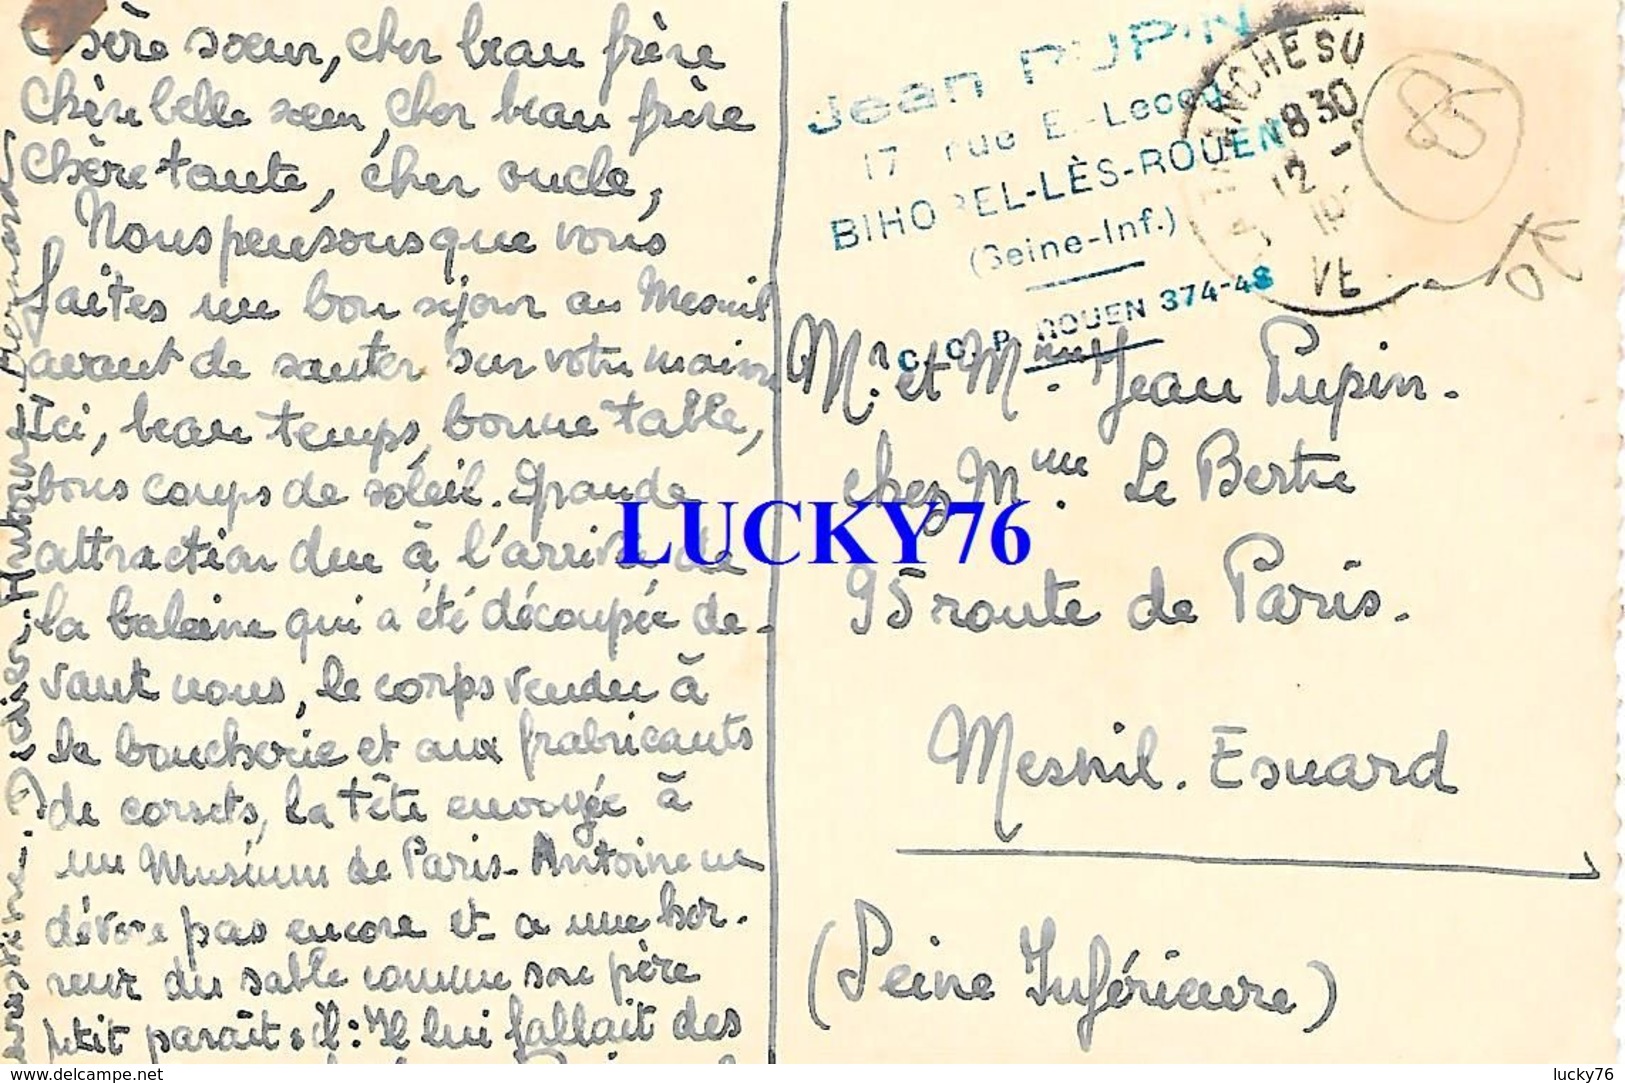 Chère soeur, cher beau frère
Chère belle soeur, cher beau frère
Chère tante, cher oncle,
Nous pensons que vous
faites un bon séjour au Mesnil
avant de sauter sur votre maison
Ici, beau temps, bonne table,
bons coups de soleil. Grande
attraction due à l'arrivée de
la baleine qui a été découpée de-
vant nous, le corps vendu à
la boucherie et aux frabricants
de corsets, la tête envoyée à
un Muséum de Paris. Antoine ne
dévore pas encore et a une hor-
reur du sable comme son père
petit paraît-il: Il lui fallait des
Didier. Antoine. Bernard
Jean PUPIN
17 rue E.-Lecoq
BIHOREL-LÈS-ROUEN
(Seine-Inf.)
C. C. P. ROUEN 374-48
18 30
12
VE
85
Mr. et Mme. Jean Pupin.
chez Mme. Le Bertre
95 route de Paris.
Mesnil. Esnard
(Seine Inférieure)
LUCKY76
www.delcampe.net
lucky76